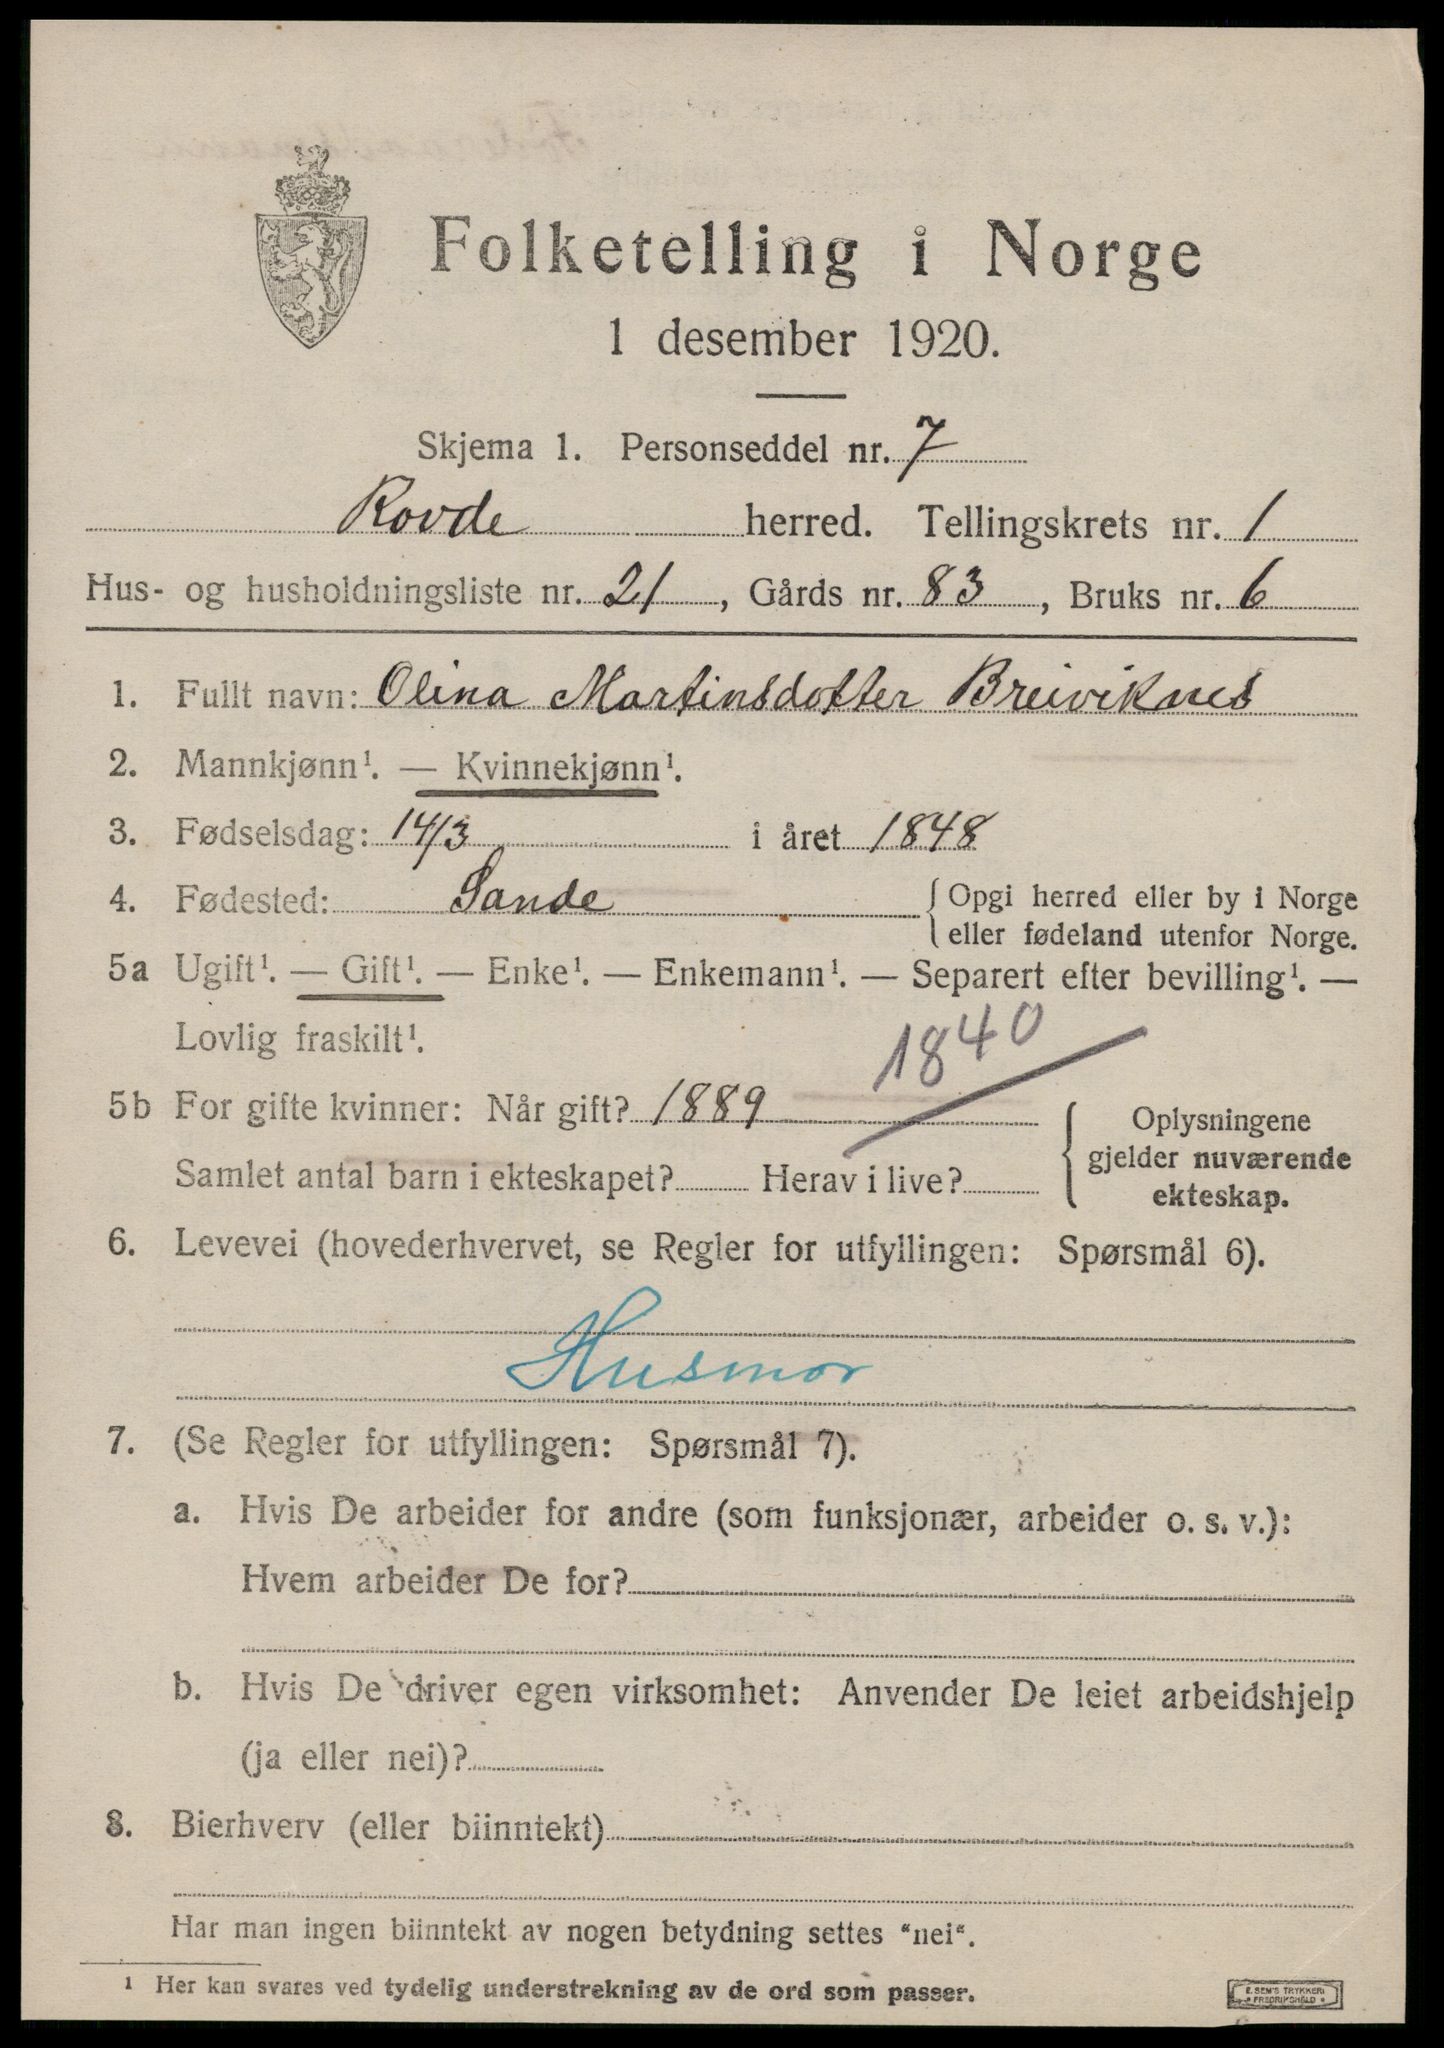 Folketelling i Norge
1 desember 1920.
Skjema 1. Personseddel nr. 7
Rovde herred. Tellingskrets nr. 1
Hus- og husholdningsliste nr. 21, Gårds nr. 83, Bruks nr. 6
1. Fullt navn: Olina Martinsdotter Breiviknes
2. Mannkjønn¹. — Kvinnekjønn¹.
3. Fødselsdag: 14/3 i året 1848
4. Fødested: Sande { Opgi herred eller by i Norge
eller fødeland utenfor Norge.
5a Ugift¹. — Gift¹. — Enke¹. — Enkemann¹. — Separert efter bevilling¹. —
Lovlig fraskilt¹.
1840
5b For gifte kvinner: Når gift? 1889
Samlet antal barn i ekteskapet? Herav i live?
Oplysningene
gjelder nuværende
ekteskap.
6. Levevei (hovederhvervet, se Regler for utfyllingen: Spørsmål 6).
Husmor
7. (Se Regler for utfyllingen: Spørsmål 7).
a. Hvis De arbeider for andre (som funksjonær, arbeider o. s. v.):
Hvem arbeider De for?
b. Hvis De driver egen virksomhet: Anvender De leiet arbeidshjelp
(ja eller nei)?
8. Bierhverv (eller biinntekt)
Har man ingen biinntekt av nogen betydning settes "nei".
¹ Her kan svares ved tydelig understrekning av de ord som passer.
E. SEM'S TRYKKERI
FREDRIKSHALD